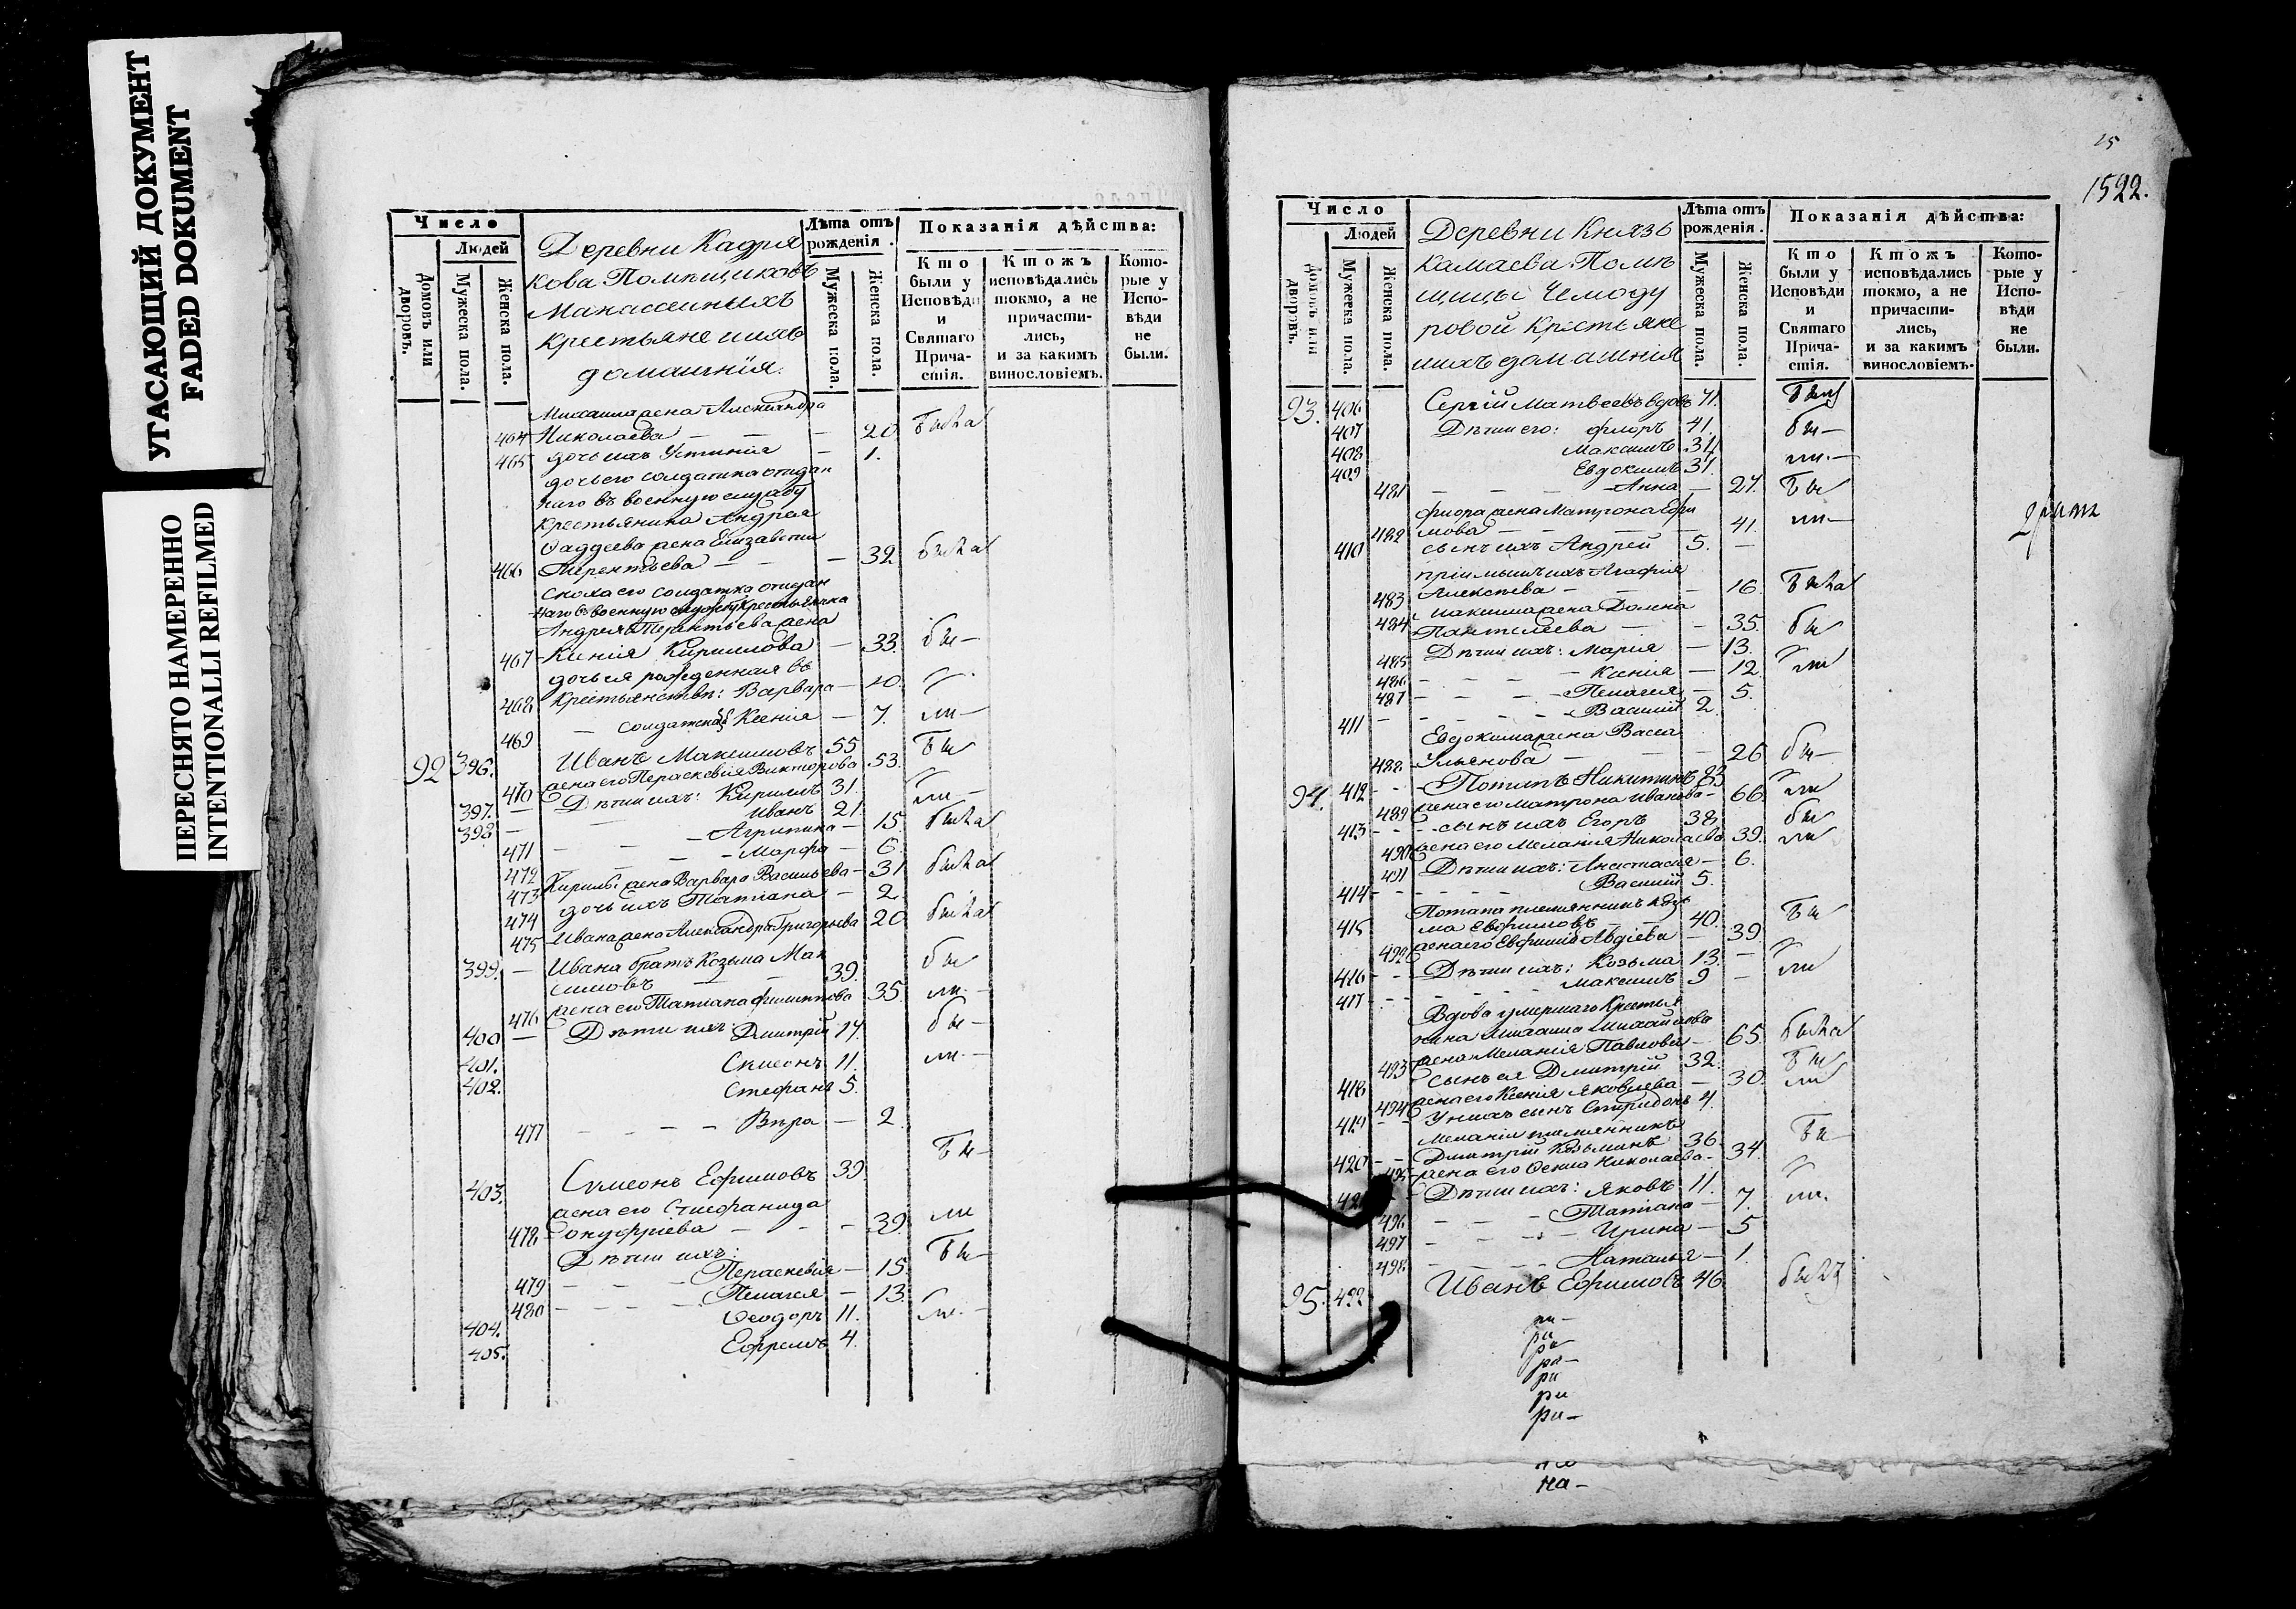 УГАСАЮЩИЙ ДОКУМЕНТ
FADED DOKUMENT
ПЕРЕСНЯТО НАМЕРЕННО
INTENTIONALLI REFILMED
Число
Людей
Домовъ или дворовъ.
Мужеска пола.
Женска пола.
Деревни Кадря
кова Помѣщиковъ
Манассеиныхъ
крестьяне ихъ
домашнія.
Лѣта отъ рожденія.
Мужеска пола.
Женска пола.
Показанія дѣйства:
Кто были у Исповѣди и Святаго Прича- стія.
Ктожъ исповѣдались токмо, а не причасти- лись, и за какимъ винословіемъ.
Кото- рые у Испо- вѣди не были.
Михаила жена Александра
464 Николаева — — — 20 была
465 дочь ихъ Устинія — 1.
дочь его солдатка отдан
наго въ военную службу
крестьянина Андрея
Фаддеева жена Елизавета
466 Терентьева — — — 32 была
сноха его солдатка отдан
наго въ военную службу крестьянина
Андрея Терентьева жена
467 Ксенія Кириллова — 33. бы—
дочь ея рожденная въ
468 крестьянствѣ: Варвара — 10.
469 — солдатской Ксенія — 7. ли—
92 396. Иванъ Максимовъ 55 бы
470 жена его Параскевія Викторова 53.
397. — Дѣти ихъ: Кириллъ 31. ли—
398 — Иванъ 21.
471 — — — Агрипина — 15. была
472 — — — Марфа — 6.
473 Кирилы жена Варвара Васильева — 31 была
474 дочь ихъ Татіана — 2.
475 Ивана жена Александра Григорьева 20 была
399. — Ивана братъ Козьма Мак
симовъ — — 39. бы
476 жена его Татіана Филиппова 35. ли.—
400 — Дѣти ихъ: Дмитрій 14. бы—
401. Симеонъ 11. ли.—
402. Стефанъ 5.
477 — — — — Вѣра — 2.
403. Симеонъ Ефимовъ 39. бы—
жена его Стефанида
478 Онуфріева — — — 39. ли
Дѣти ихъ:
479 — — — Параскевія — 15. бы—
480 — — — — Пелагея — 13.
404. Ѳеодоръ 11. ли.—
405. Ефремъ 4.
25
1522.
Число
Людей
Домовъ или дворовъ.
Мужеска пола.
Женска пола.
Деревни Князь
камаева Помѣ
щицы Чемоду
ровой Крестьяне
ихъ домашнія
Лѣта отъ рожденія.
Мужеска пола.
Женска пола.
Показанія дѣйства:
Кто были у Исповѣди и Святаго Прича- стія.
Ктожъ исповѣдались токмо, а не причасти- лись, и за какимъ винословіемъ.
Кото- рые у Испо- вѣди не были.
93. 406 Сергій Матвеевъ вдовъ 71.
407 Дѣти его: Флоръ 41. бы—
408 Максимъ 37. ли.—
409 Евдокимъ 31.
481 — — — Анна — 27. бы
Флора жена Матрона Ефи
482 мова — — — — 41. ли—
410 сынъ ихъ Андрей 5. —
пріимышъ ихъ Агафія
483 Алексѣева — — — 16. была
Максима жена Домна
484 Пантелеева — — 35. бы
485 Дѣти ихъ: Марія — 13.
486 — — — — Ксенія — 12. ли
487 — — — — Пелагея — 5.
411 — — — — Василій 2.
Евдокима жена Васса
488 Ульянова — — — 26 бы—
94. 412 — — Потапъ Никитинъ 83 ли
489 жена его Матрона Иванова — 66.
413 — — — сынъ ихъ Егоръ 38. бы
490 жена его Меланія Николаева 39. ли
491 Дѣти ихъ: Анастасія — 6.
414 — — — — Василій 5.
Потапа племянникъ Кузь
415 ма Ефимовъ — — 40. бы
492 жена его Евфимія Авдіева — 39.
416 — — Дѣти ихъ: Козьма 13. —
417 — — — Максимъ 9 — ли
Вдова умершаго Крестья
нина Михаила Михайлова
493 жена Меланія Павлова — 65. была
418 сынъ ея Дмитрій 32. бы
494 жена его Ксенія Яковлева — 30. ли
419 — — У нихъ сынъ Спиридонъ 4.
Меланіи племянникъ
420 — — Дмитрій Козьминъ 36. бы—
495 жена его Ѳекла Николаева — 34.
421 Дѣти ихъ: Яковъ 11.
496 — — — Татіана — 7. ли.
497 — — — Ирина — 5
498 — — — Наталья — 1.
95. 422 Иванъ Ефимовъ 46.
ри—
ри
ри
ри—
ри
ри
ри—
на—